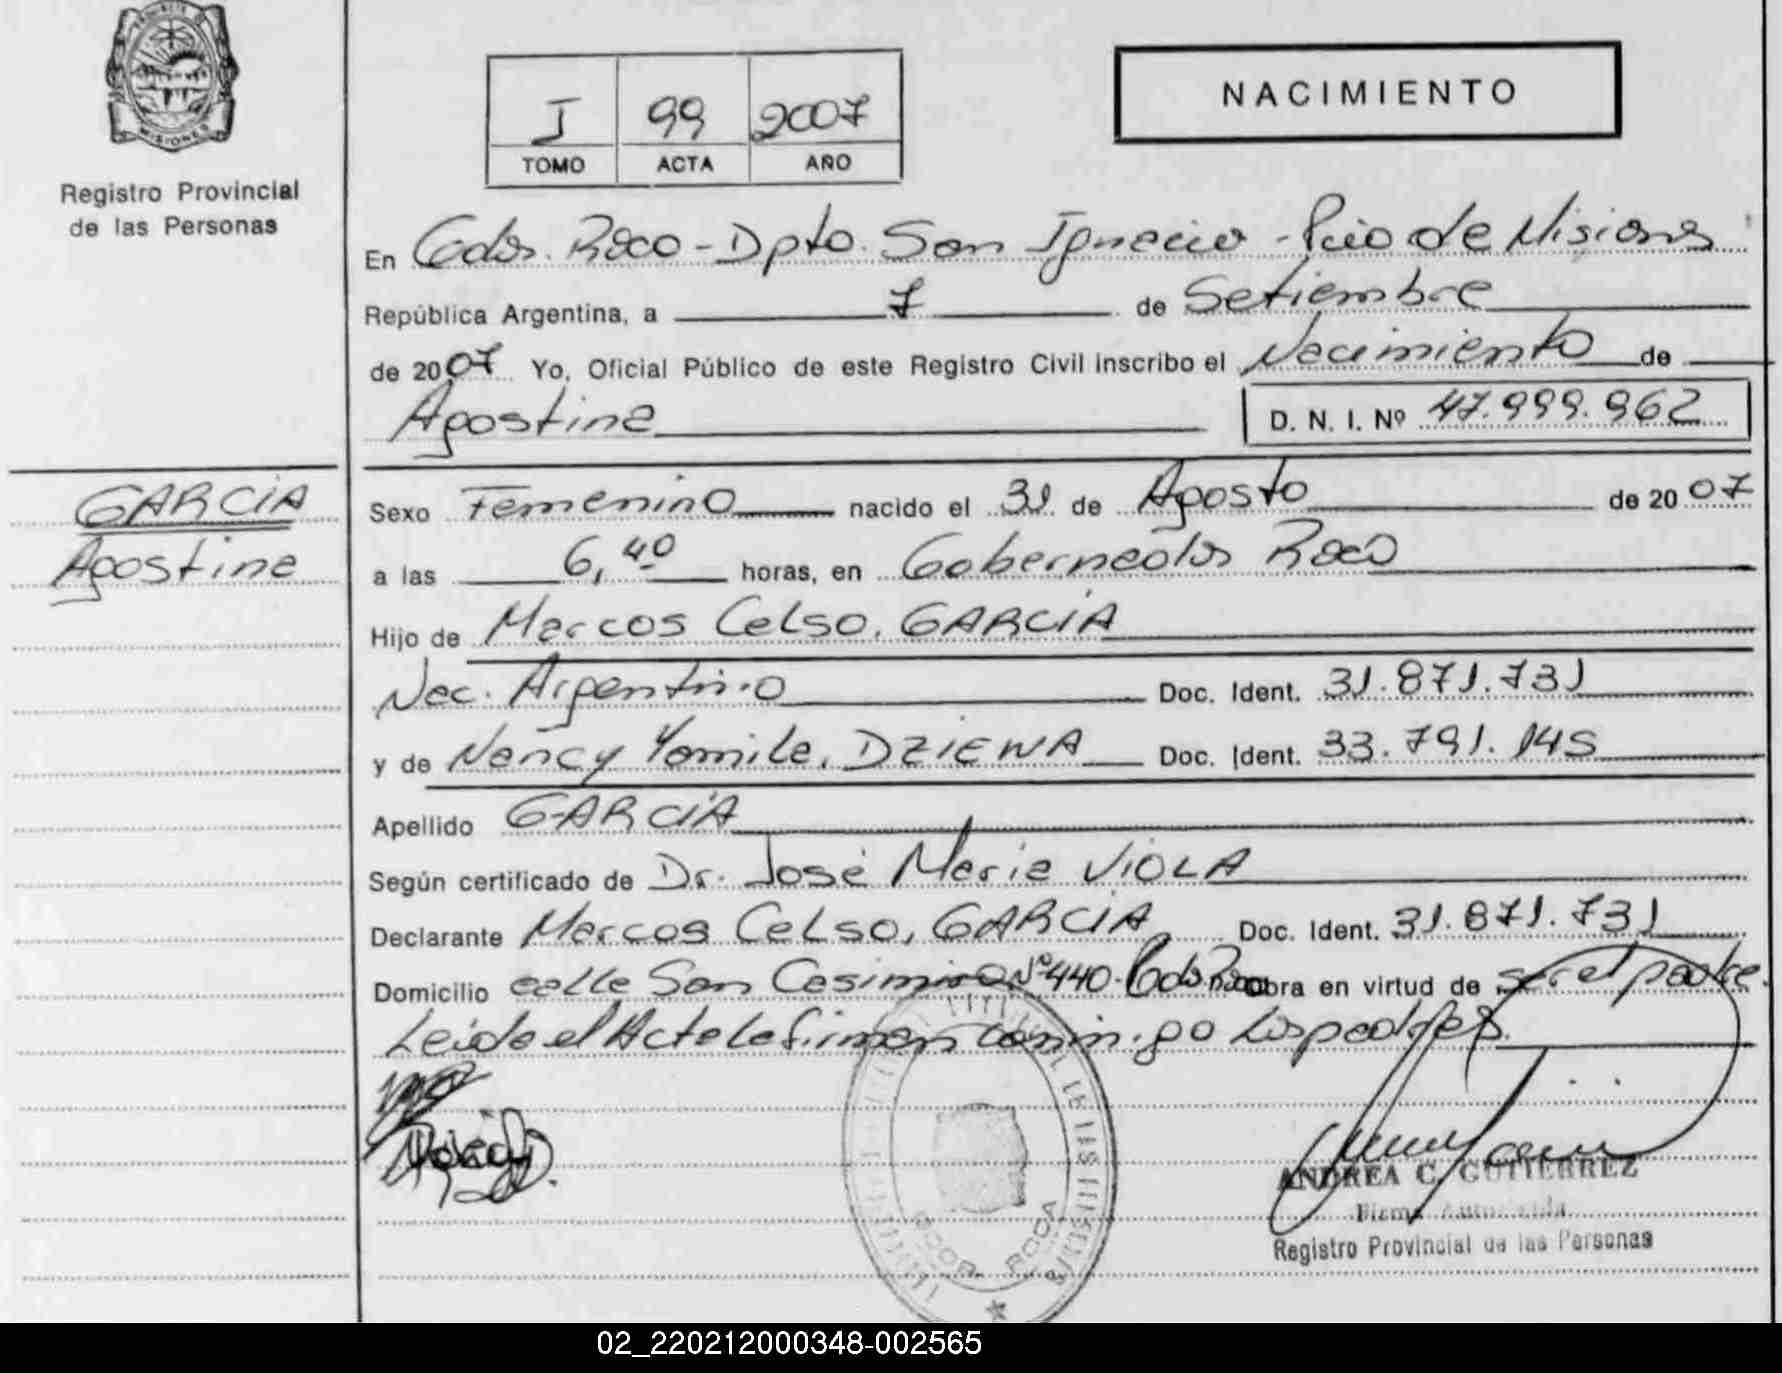 MISIONES
Registro Provincial
de las Personas
I 99 2007
TOMO ACTA AÑO
NACIMIENTO
En Gdor. Roca - Dpto. San Ignacio - Pcia de Misiones
República Argentina, a 7 de Setiembre
de 2007 Yo, Oficial Público de este Registro Civil inscribo el Nacimiento de
Agostina D. N. I. Nº 47.999.962
GARCÍA
Agostina
Sexo Femenino nacido el 31 de Agosto de 2007
a las 6,40 horas, en Gobernador Roca
Hijo de Marcos Celso, GARCÍA
Nac. Argentino Doc. Ident. 31.871.731
y de Nancy Yamile, DZIEWA Doc. Ident. 33.791.145
Apellido GARCÍA
Según certificado de Dr. José María VIOLA
Declarante Marcos Celso, GARCÍA Doc. Ident. 31.871.731
Domicilio calle San Casimiro Nº 440 - Gdor Roca obra en virtud de ser el padre.
Leída el Acta la firman conmigo los padres.
ANDREA C. GUTIERREZ
Firma Autorizada
Registro Provincial de las Personas
GDOR. ROCA
02_220212000348-002565